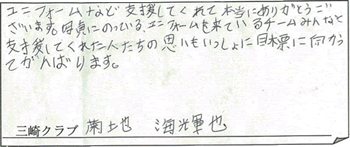 ユニフォームなど支援してくれて本当にありがとうご
ざいます。写真にのっている、ユニフォームを来ているチームみんなと
支援してくれた人たちの思いもいっしょに目標に向かっ
てがんばります。
三崎クラブ 菊地 海光輝也